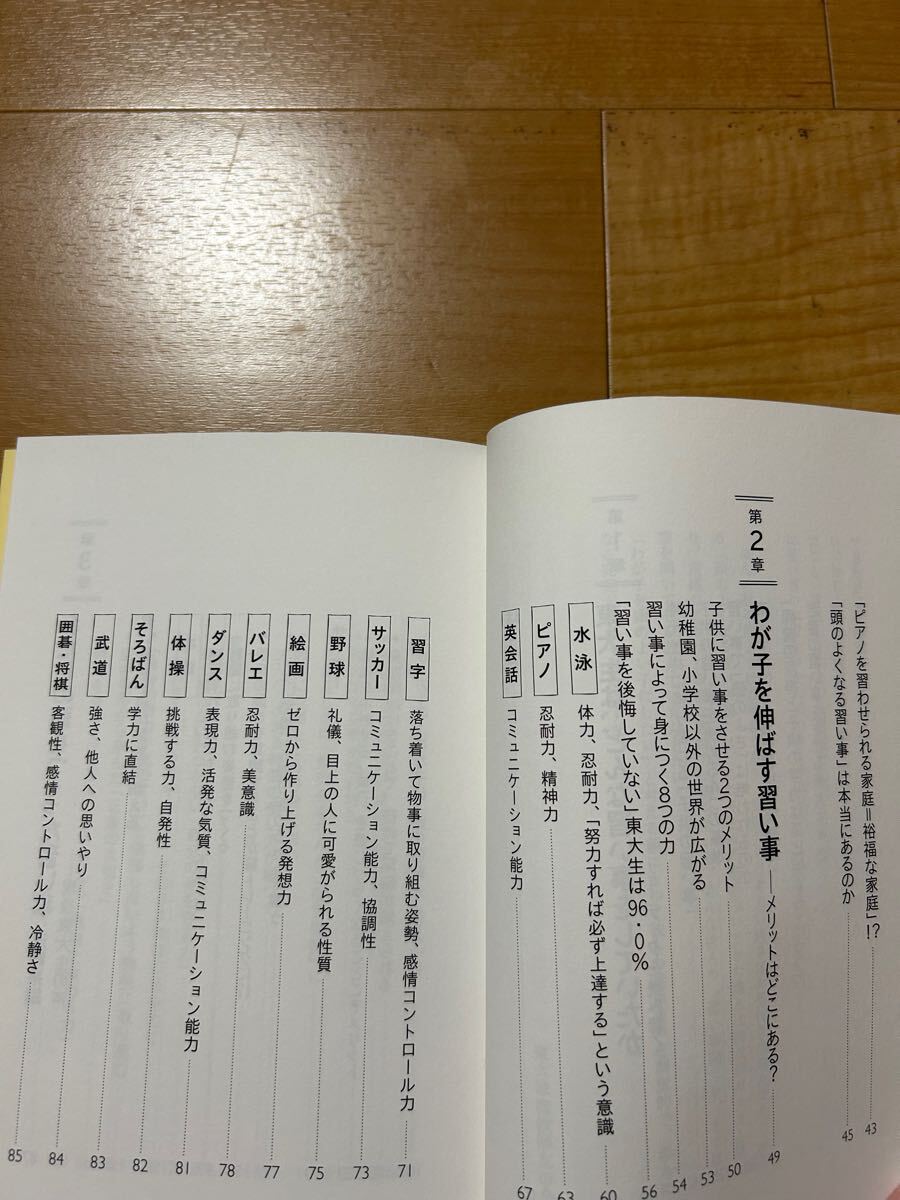 「ピアノを習わせられる家庭＝裕福な家庭」!? 43
「頭のよくなる習い事」は本当にあるのか 45
第2章 わが子を伸ばす習い事 ―メリットはどこにある？ 49
子供に習い事をさせる2つのメリット 50
幼稚園、小学校以外の世界が広がる 53
習い事によって身につく8つの力 54
「習い事を後悔していない」東大生は96・0％ 56
水泳 体力、忍耐力、「努力すれば必ず上達する」という意識 60
ピアノ 忍耐力、精神力 63
英会話 コミュニケーション能力 67
習字 落ち着いて物事に取り組む姿勢、感情コントロール力 71
サッカー コミュニケーション能力、協調性 73
野球 礼儀、目上の人に可愛がられる性質 75
絵画 ゼロから作り上げる発想力 77
バレエ 忍耐力、美意識 78
ダンス 表現力、活発な気質、コミュニケーション能力 81
体操 挑戦する力、自発性 82
そろばん 学力に直結 83
武道 強さ、他人への思いやり 84
囲碁・将棋 客観性、感情コントロール力、冷静さ 85